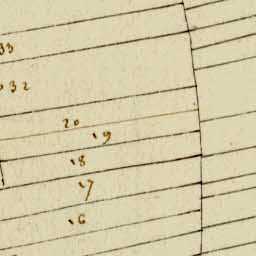 33
32
20
19
18
17
16